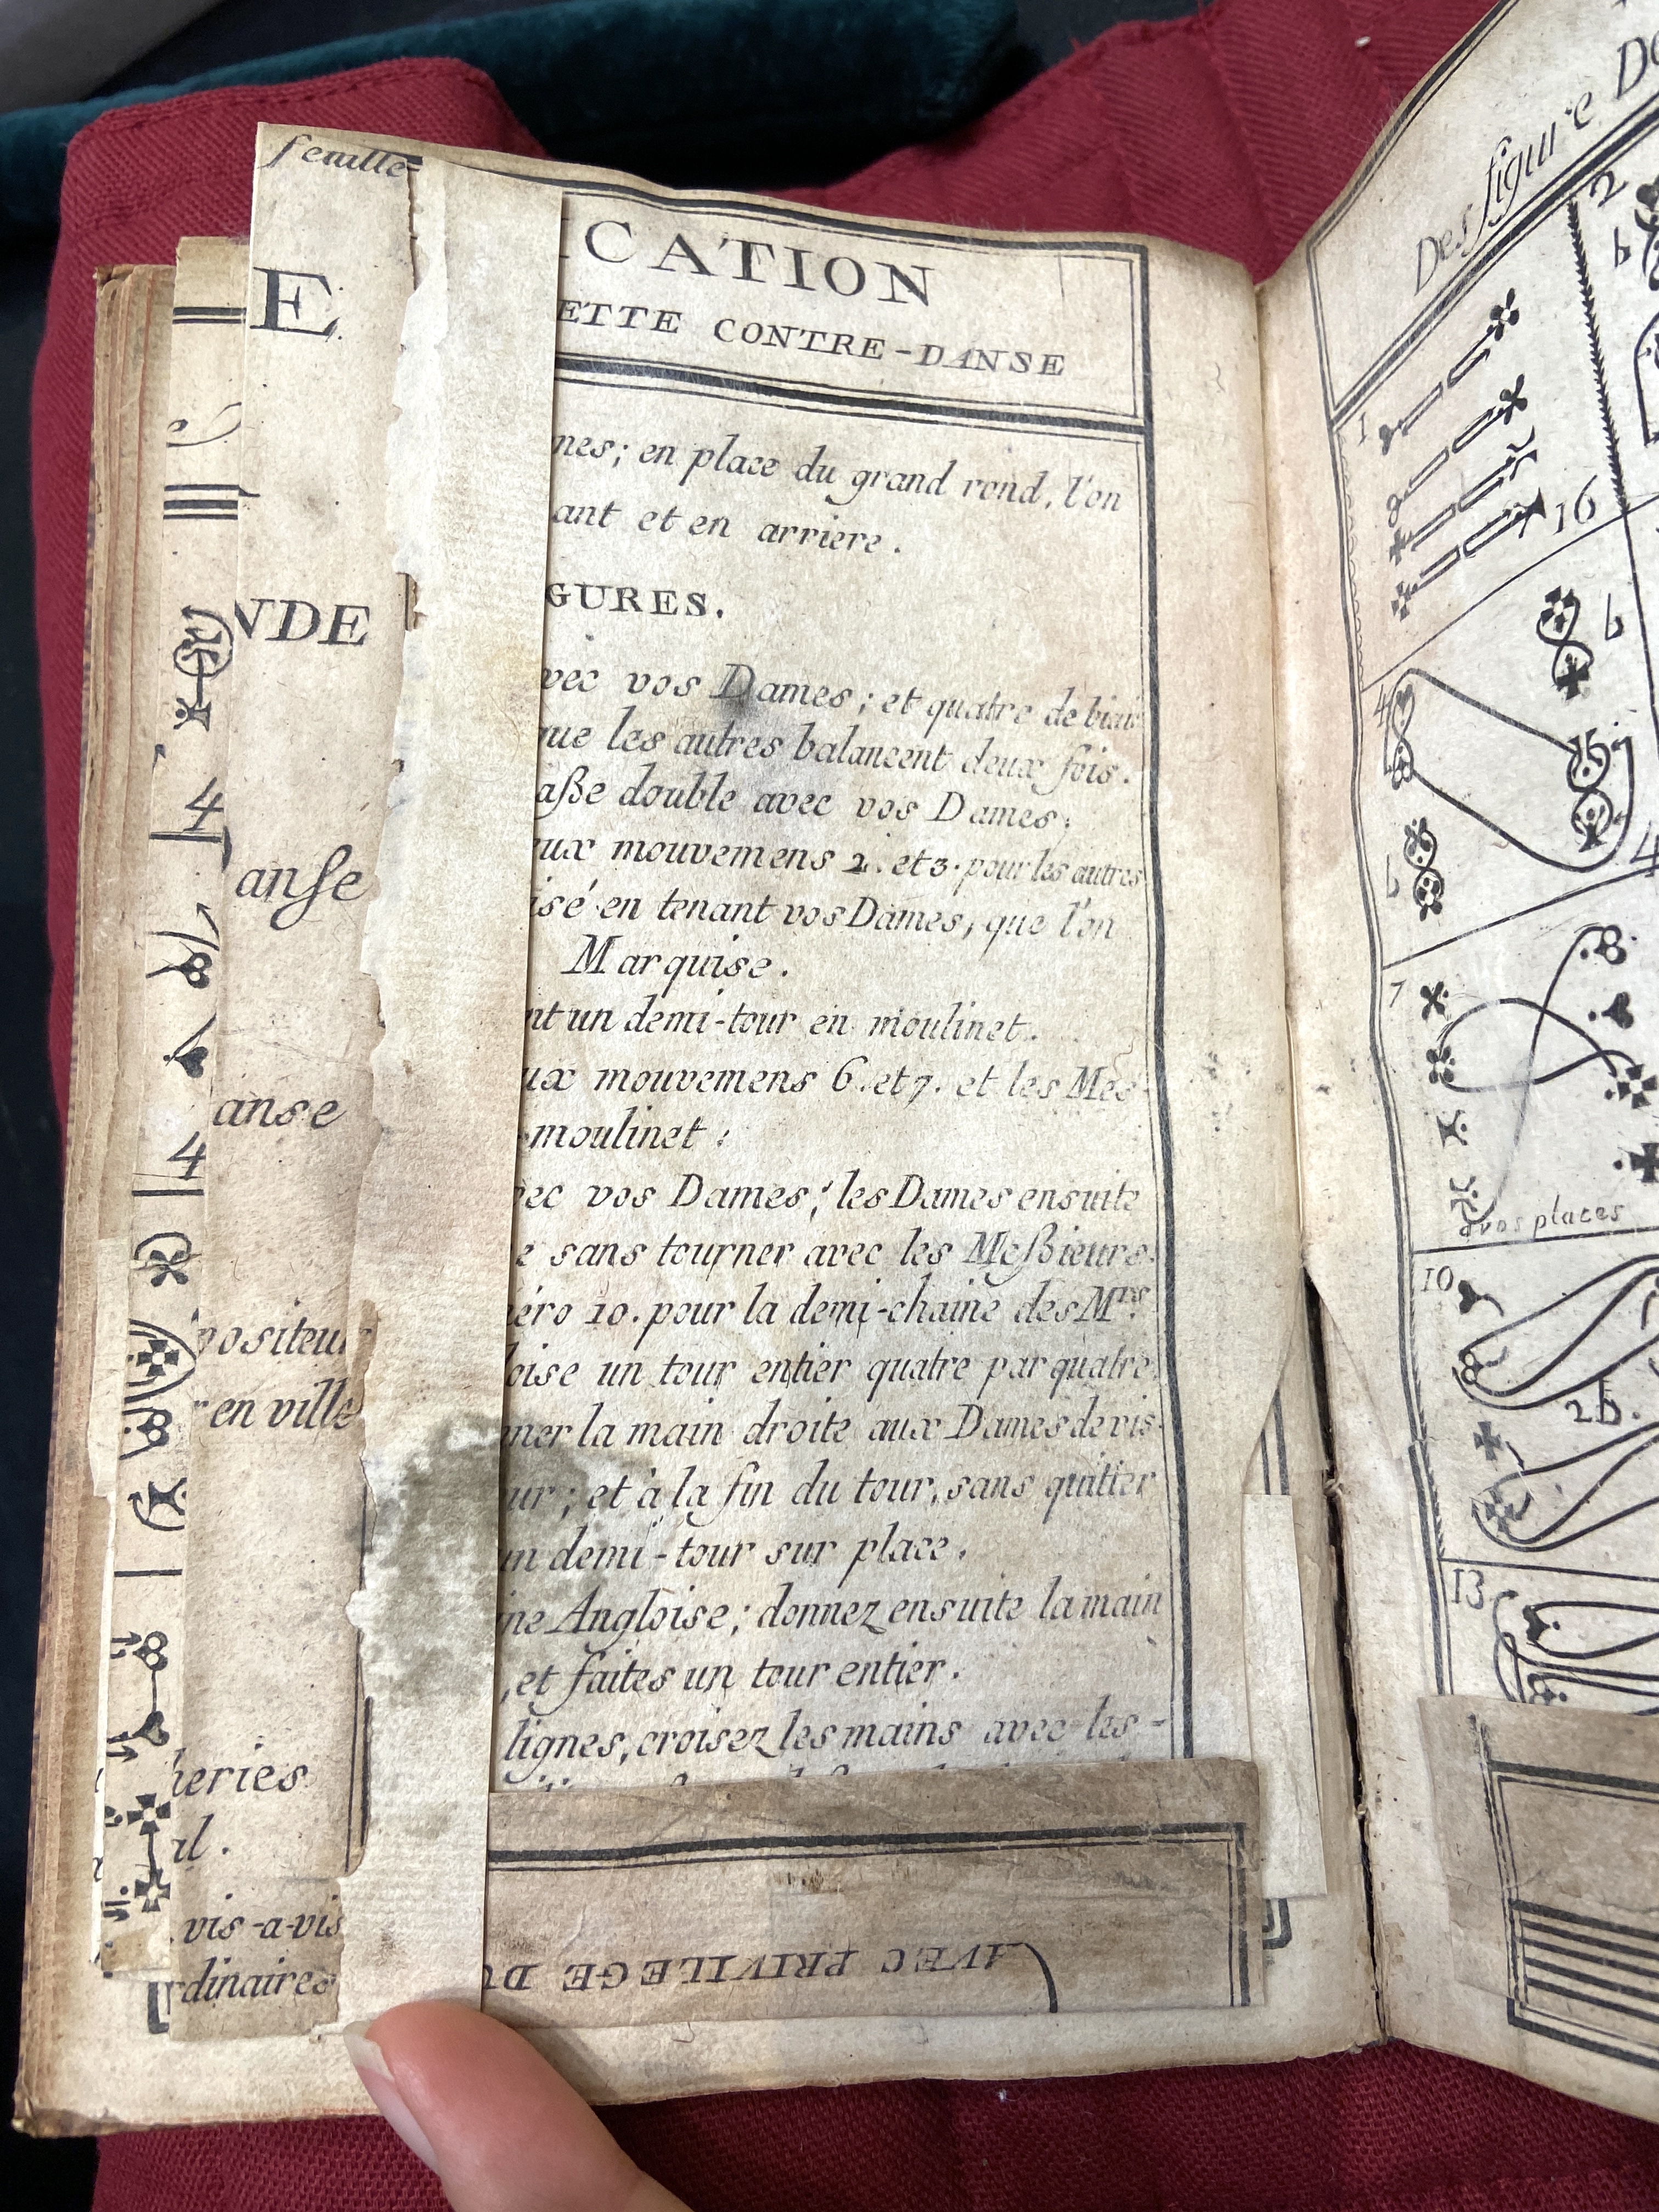 feuille-
E.
NDE
anse
anse
positeur
en ville
heries
al.
vis-a-vis
rdinaires
ICATION
ETTE CONTRE-DANSE
nes; en place du grand rond, l'on
ant et en arriere.
GURES.
vec vos Dames; et quatre de biais
que les autres balancent deux fois.
aße double avec vos Dames;
ux mouvemens 2. et 3. pour les autres
isé en tenant vos Dames, que l'on
Marquise.
nt un demi-tour en moulinet.
ux mouvemens 6. et 7. et les Mes-
moulinet:
ec vos Dames; les Dames ensuite
e sans tourner avec les Meßieurs.
éro 10. pour la demi-chaine des Mrs.
loise un tour entier quatre par quatre.
ner la main droite aux Dames de vis-
ur; et à la fin du tour, sans quitter
un demi-tour sur place.
ine Angloise; donnez ensuite la main
, et faites un tour entier.
lignes, croisez les mains avec les-
AVEC PRIVILEGE DU
4
4
Des figure De
1
2
b
16
4
b
b
4
7
a vos places
10
2b.
13